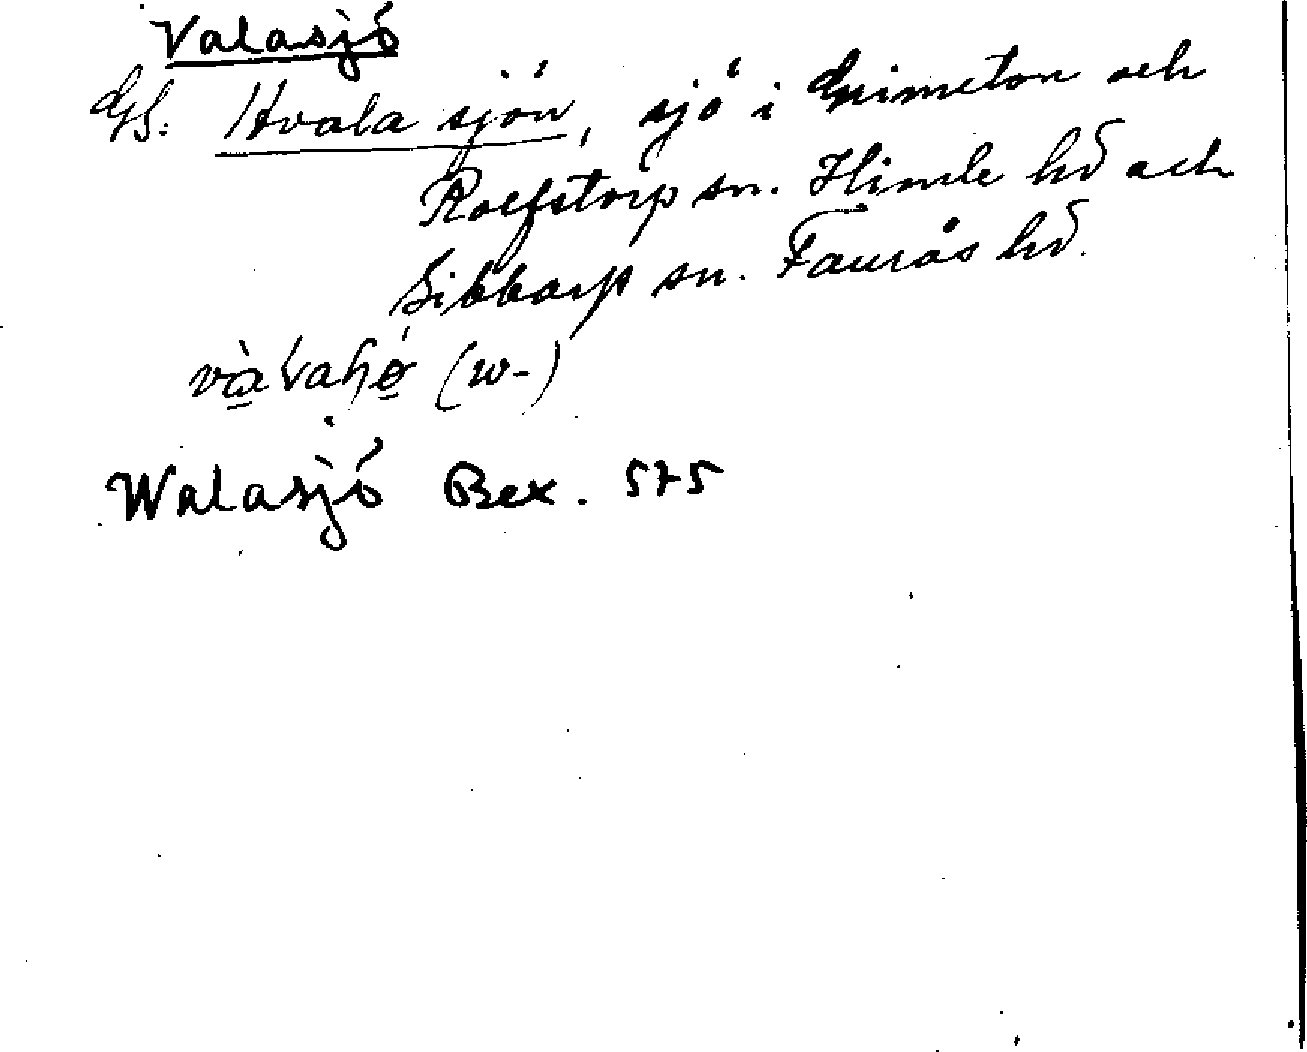 Valasjö
Gs. Hvala sjön, sjö i Grimeton och
Rolfstorp sn. Himle hd och
Sibbarp sn. Faurås hd.
(w-)
Walasjö Bex. 575